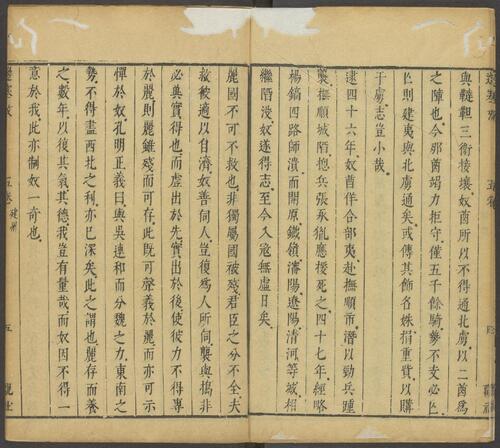 與韃靼三衛接壤奴酋所以不得通北虜以二酋爲
之障也今那酋竭力拒守僅五千餘騎勢不支必亡
亡則建夷與北虜通矣或傳其飾名姝捐重貲以購
于虜志豈小哉
逮四十六年奴酋佯合部夷赴撫順市潛以勁兵踵
襲撫順城陷總兵張承胤應援死之四十七年經略
楊鎬四路師潰而開原鐵嶺瀋陽遼陽清河等城相
繼陷沒奴遂得志至今入寇無虛日矣
麗國不可不救也非獨屬國被殘君臣之分不全夫
救彼適以自濟奴善伺人豈復爲人所伺襲與搗非
必與實得也而虛出於先實出於後使彼力不得專
於麗則麗雖殘而可存此既可聲義於麗而亦可示
憚於奴孔明正義曰與吳連和而分魏之力東南之
勢不得盡西北之利亦已深矣此之謂也麗存而養
之數年以後其氣其德我豈有量哉而奴因不得一
意於我此亦制奴一奇也
五卷
建州
五